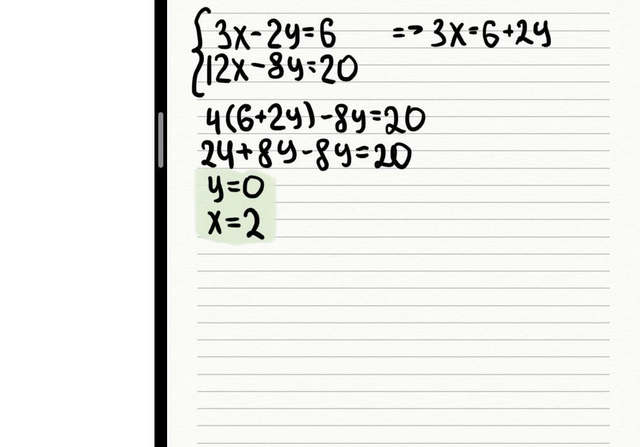 3x-2y=6 => 3x=6+2y
12x-8y=20
4(6+2y)-8y=20
24+8y-8y=20
y=0
x=2